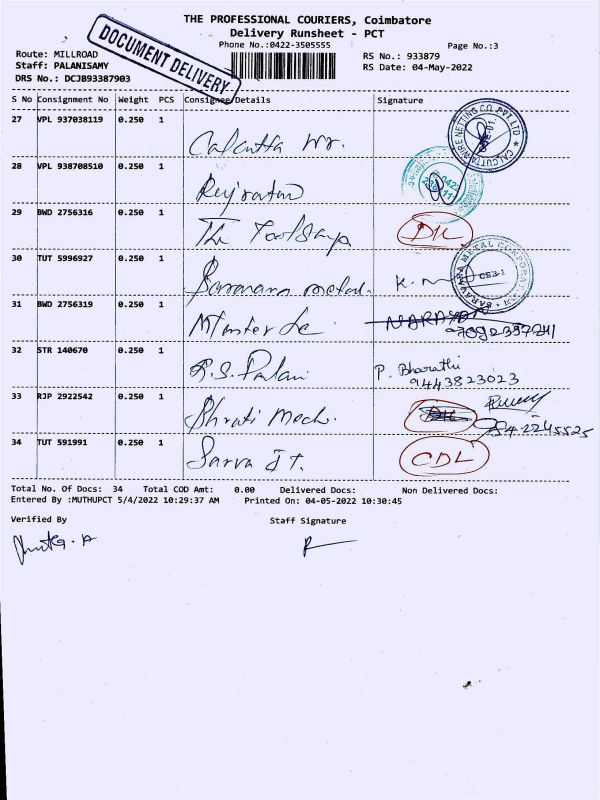 THE PROFESSIONAL COURIERS, Coimbatore
Delivery Runsheet - PCT
Phone No.:0422-3505555
Page No.:3
DOCUMENT DELIVERY
Route: MILLROAD
RS No.: 933879
Staff: PALANISAMY
RS Date: 04-May-2022
DRS No.: DCJB93387903
S No Consignment No Weight PCS Consignee Details Signature
27 VPL 937038119 0.250 1
Calcutta Wr.
28 VPL 938708510 0.250 1
29 BWD 2756316 0.250 1
The
30 TUT 5996927 0.250 1
metal.
31 BWD 2756319 0.250 1
32 STR 140670 0.250 1
R.S. Palani P. Bharathi
9443823023
33 RJP 2922542 0.250 1
Bhrati Mech.
34 TUT 591991 0.250 1
CDL
Total No. Of Docs: 34 Total COD Amt: 0.00 Delivered Docs: Non Delivered Docs:
Entered By :MUTHUPCT 5/4/2022 10:29:37 AM Printed On: 04-05-2022 10:30:45
Verified By Staff Signature